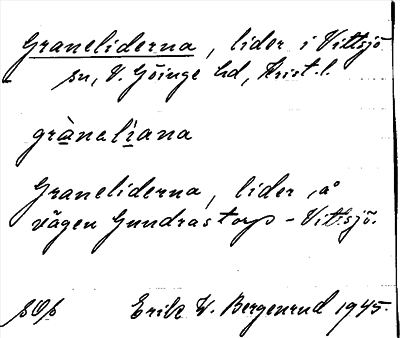 Graneliderna, lider i Vittsjö
sn, V. Göinge hd, Krist. l.
gràneli̇ana
Graneliderna, lider å
vägen Gundrastorp - Vittsjö.
Erik W. Bergenrud 1945.